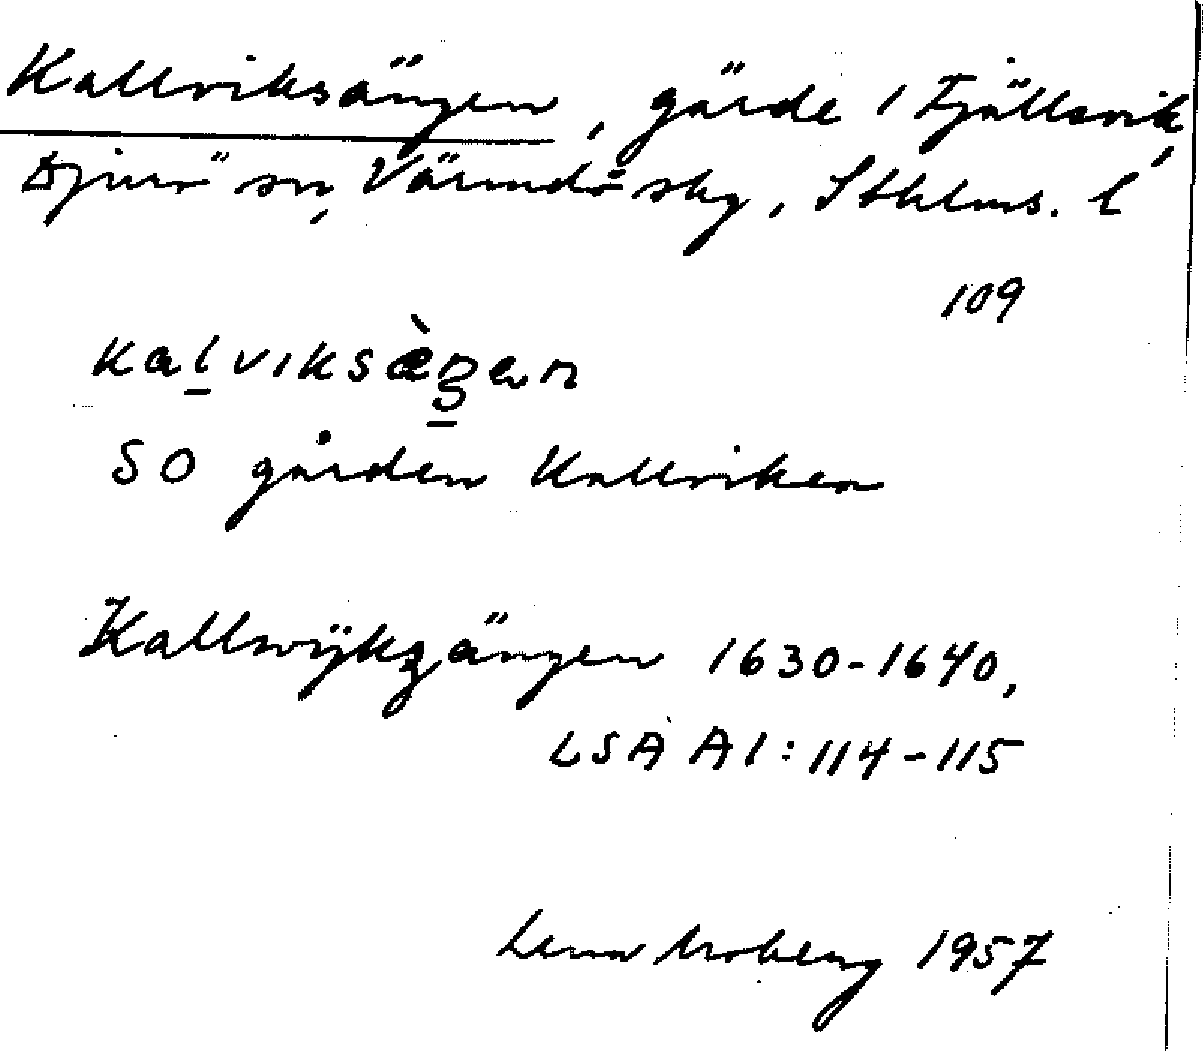 Kallviksängen, gärde i Fjällsvik,
Djurö sn, Värmdö skg, Sthlms. l
109
kalviksæ̀ŋen
SO gården Kallviken
Kallwijkzängen 1630-1640,
LSA A1:114-115
Lena Moberg 1957